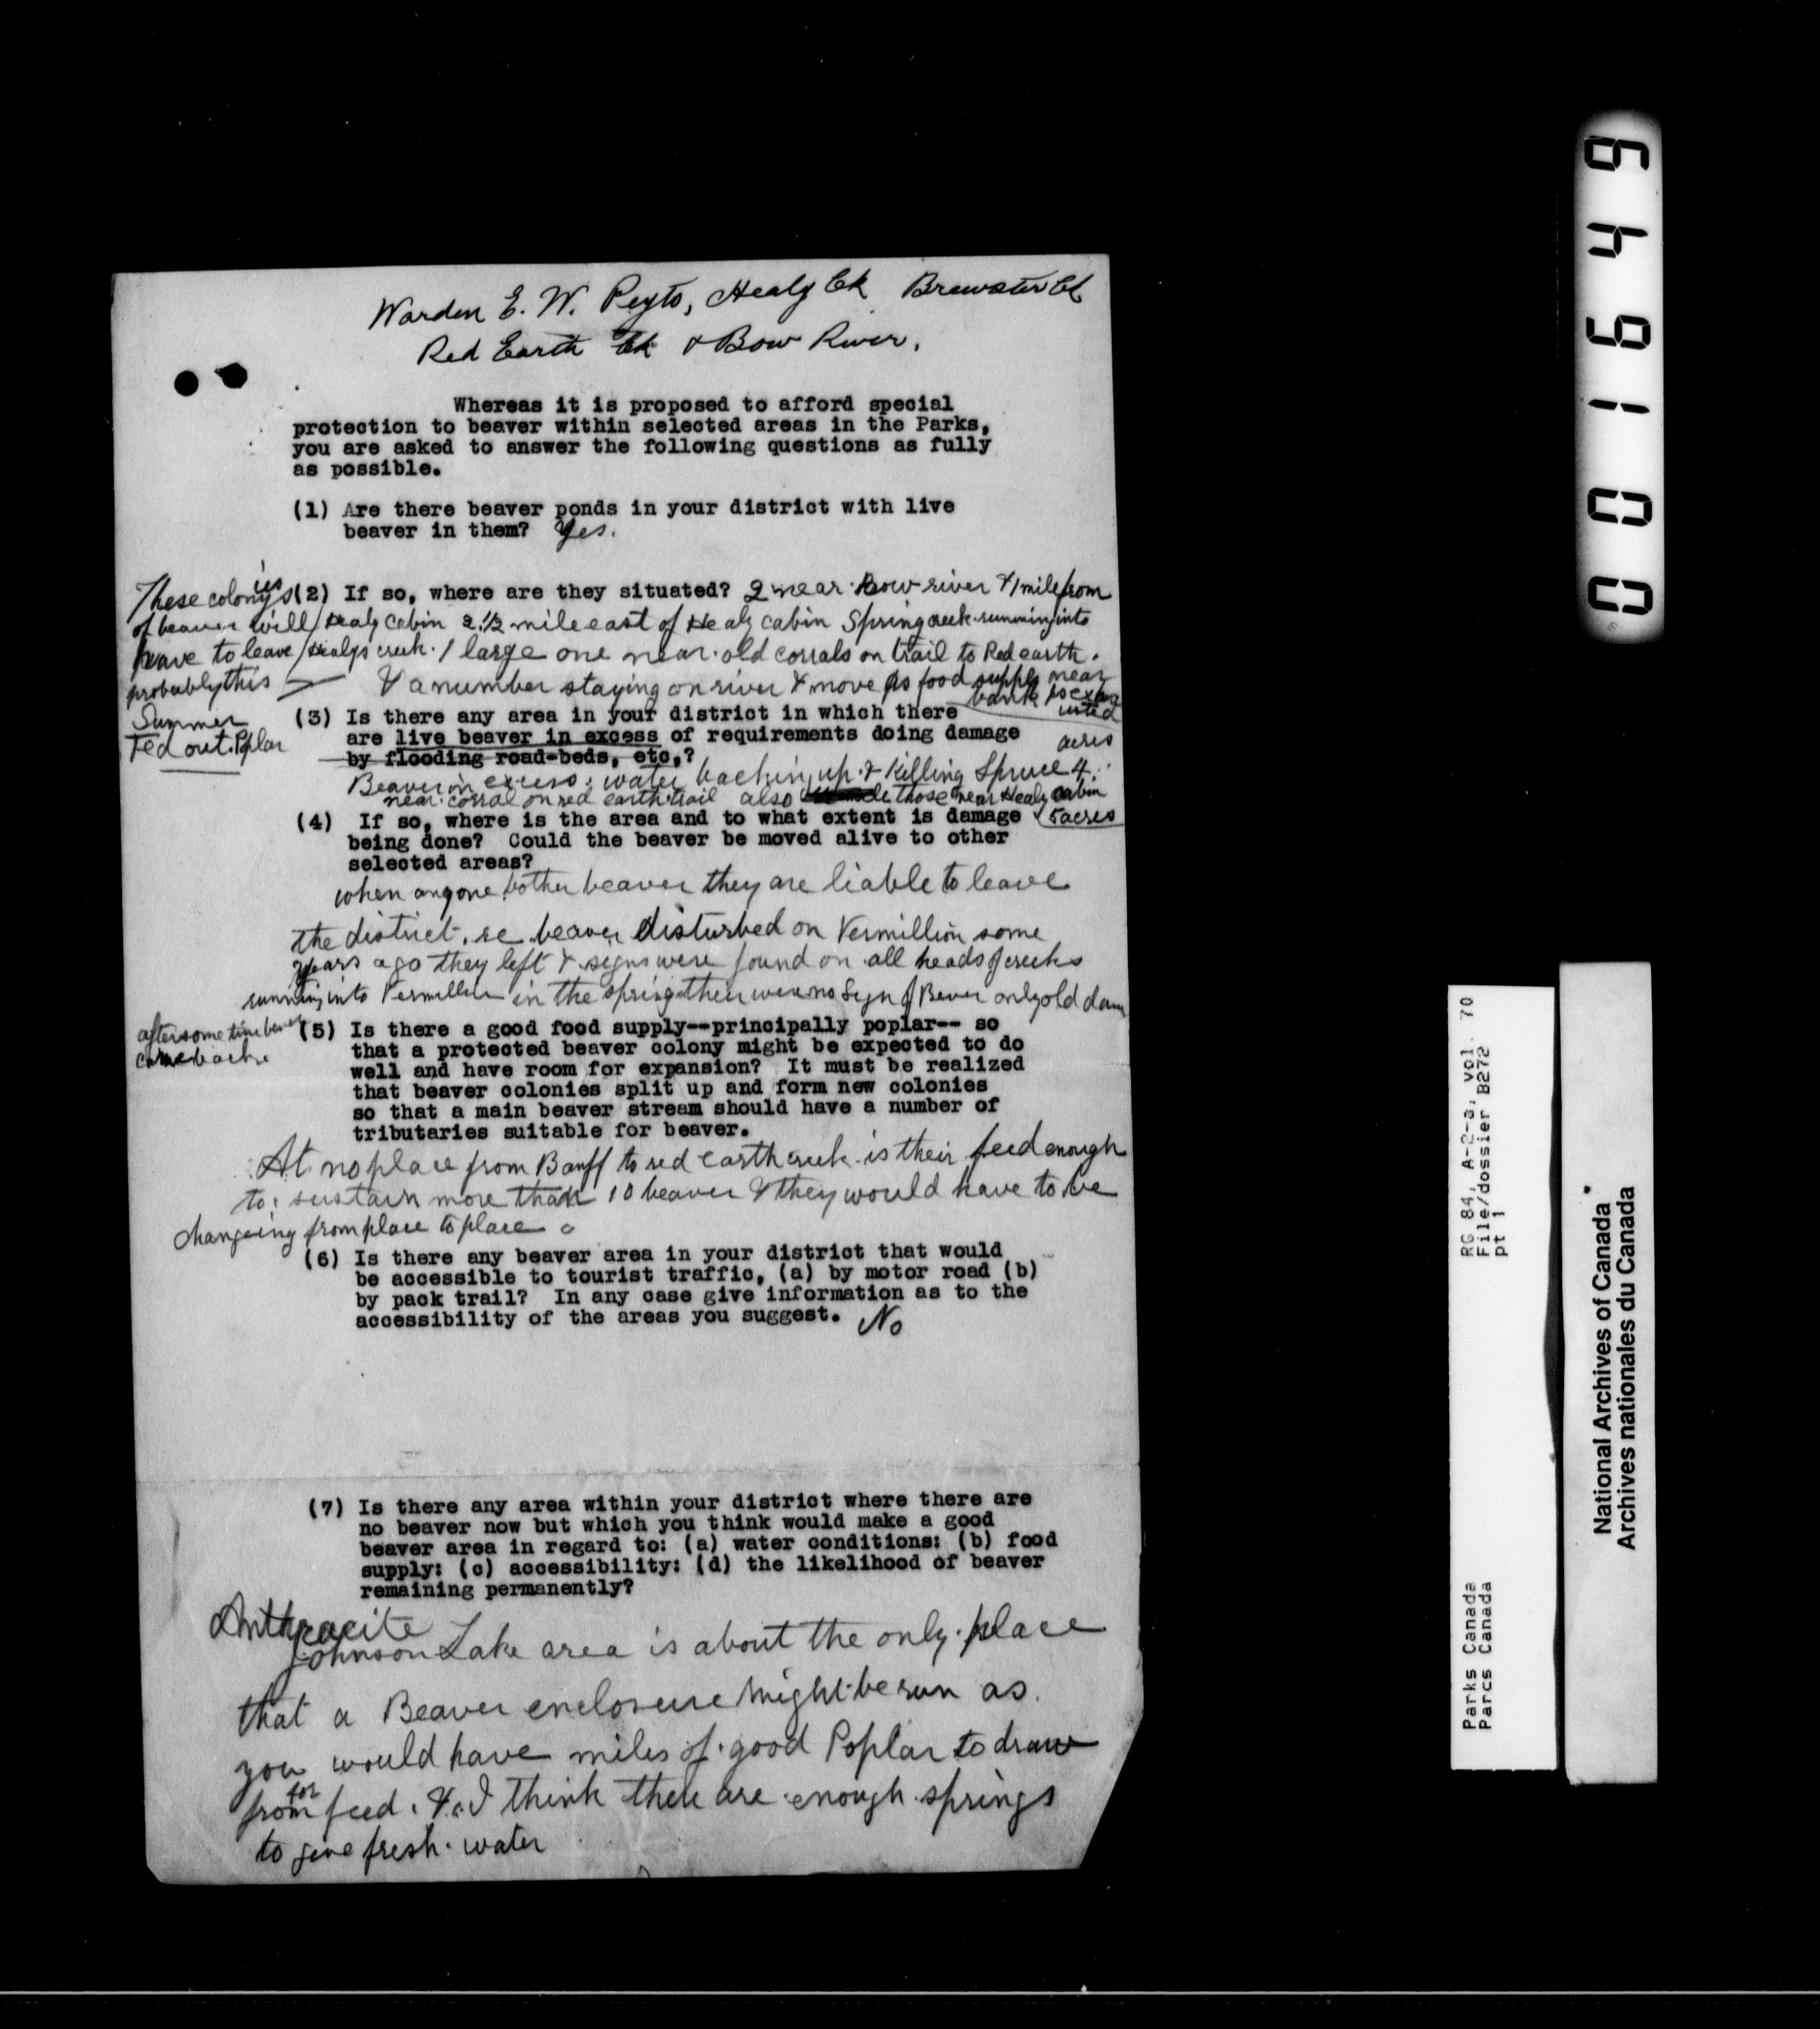 Warden E. W. Peyto, Healy Ck Brewster Ck
Red Earth Ck & Bow River.
Whereas it is proposed to afford special
protection to beaver within selected areas in the Parks,
you are asked to answer the following questions as fully
as possible.
(1) Are there beaver ponds in your district with live
beaver in them? Yes.
(2) If so, where are they situated? 2 near Bow river & 1 mile from
Healy Cabin 2 1/2 mile east of Healy cabin Spring creek running into
Healys creek. 1 large one near old corrals on trail to Red earth.
& a number staying on river & move as food supply near
bank is exhausted
These colonies
of beaver will
have to leave
probably this
Summer
Fed out. Poplar
(3) Is there any area in your district in which there
are live beaver in excess of requirements doing damage
by flooding road-beds, etc,?
Beaver in excess: water backing up & killing Spruce 4 acres
near corral on red earth trail also those near Healy cabin
5 acres
(4) If so, where is the area and to what extent is damage
being done? Could the beaver be moved alive to other
selected areas?
when anyone bother beaver they are liable to leave
the district. re beaver disturbed on Vermillion some
years ago they left & signs were found on all heads of creeks
running into Vermillion in the spring their were no Sign of Bever only old dam
after some time beaver
came back
(5) Is there a good food supply--principally poplar-- so
that a protected beaver colony might be expected to do
well and have room for expansion? It must be realized
that beaver colonies split up and form new colonies
so that a main beaver stream should have a number of
tributaries suitable for beaver.
At no place from Banff to red earth creek is their feed enough
to sustain more than 10 beaver & they would have to be
changeing from place to place
(6) Is there any beaver area in your district that would
be accessible to tourist traffic, (a) by motor road (b)
by pack trail? In any case give information as to the
accessibility of the areas you suggest. No
(7) Is there any area within your district where there are
no beaver now but which you think would make a good
beaver area in regard to: (a) water conditions: (b) food
supply: (c) accessibility: (d) the likelihood of beaver
remaining permanently?
Anthracite
Johnson Lake area is about the only place
that a Beaver enclosure might be run as
you would have miles of good Poplar to draw
from for feed. & I think there are enough springs
to give fresh water
001649
RG 84, A-2-a, vol. 70
File/dossier B272
pt 1
Parks Canada
Parcs Canada
National Archives of Canada
Archives nationales du Canada